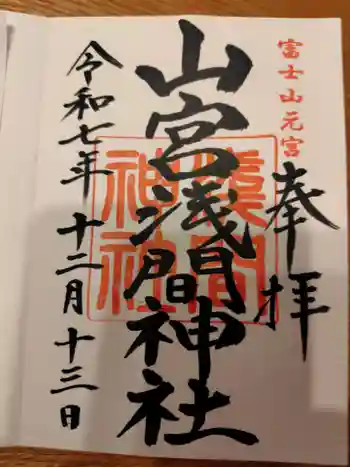 富士山元宮
奉拝
山宮浅間神社
令和七年 十二月 十三日
浅間
神社